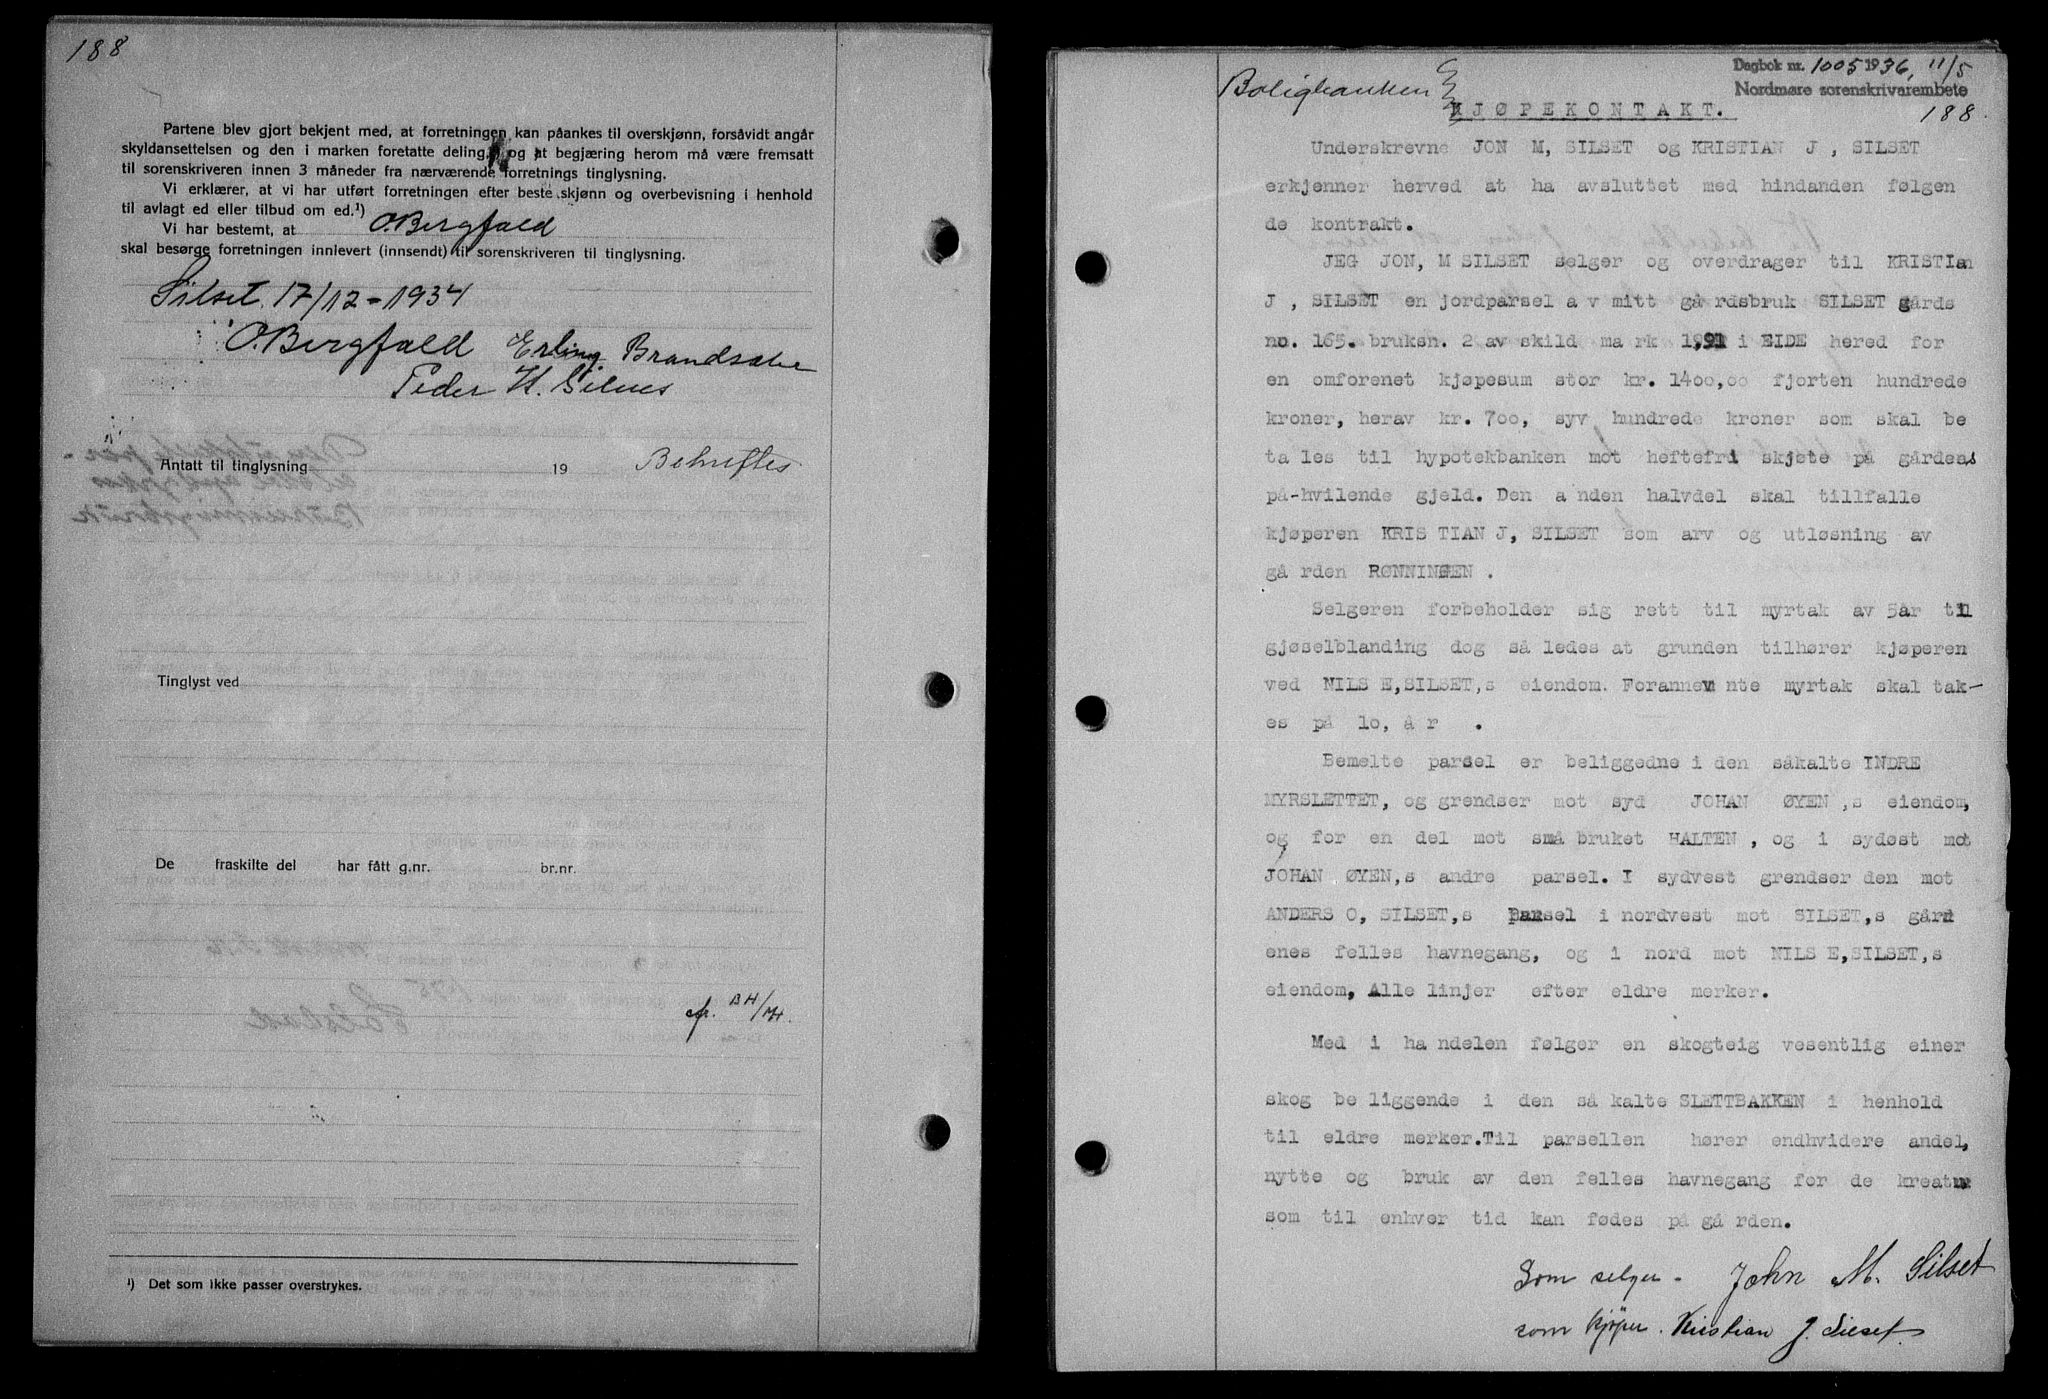 188
Partene blev gjort bekjent med, at forretningen kan påankes til overskjønn, forsåvidt angår
skyldansettelsen og den i marken foretatte deling, og at begjæring herom må være fremsatt
til sorenskriveren innen 3 måneder fra nærværende forretnings tinglysning.
Vi erklærer, at vi har utført forretningen efter beste skjønn og overbevisning i henhold
til avlagt ed eller tilbud om ed.¹)
Vi har bestemt, at O. Bergfald
skal besørge forretningen innlevert (innsendt) til sorenskriveren til tinglysning.
Silset, 17/12 - 1934
O. Bergfald Erling Brandsæter
Peder H. Silnes
Antatt til tinglysning 19 Bekreftes
Tinglyst ved
De fraskilte del har fått g.nr. br.nr.
¹) Det som ikke passer overstrykes.
Dagbok nr. 1005 1936, 11/5
Nordmøre sorenskrivarembete
188
Boligbanken
KJØPEKONTAKT.
Underskrevne JON M, SILSET og KRISTIAN J , SILSET
erkjenner herved at ha avsluttet med hindanden følgen
de kontrakt.
JEG JON, M SILSET selger og overdrager til KRISTIan
J , SILSET en jordparsel a v mitt gå rdsbruk SILSET gårds
no. 165. bruksn. 2 av skild ma rk 1,91 i EIDE hered for
en omforenet kjøpesum stor kr. 14oo,oo fjorten hundrede
kroner, herav kr. 7oo, syv hundrede kroner som skal be
ta les til hypotekbanken mot heftefri skjøte på gårdeas
på-hvilende gjeld. Den a nden halvdel skal tillfalle
kjøperen KRIS TIAN J, SILSET som arv og utløsning av
gå rden RØNNINGEN .
Selgeren forbeholder sig rett til myrtak av 5år til
gjøselblanding dog så ledes at grunden tilhører kjøperen
ved NILS E,SILSET,s eiendom. Forannevn nte myrtak skal tak-
es på 1o, å r .
Bemelte parsel er beliggedne i den såkalte INDRE
MYRSLETTET, og grendser mot syd JOHAN ØYEN ,s eiendom,
og for en del mot små bruket HALTEN , og i sydøst mot
JOHAN ØYEN,s andre parsel. I sydvest grendser den mot
ANDERS O, SILSET,s parsel i nordvest mot SILSET,s gård
enes felles havnegang, og i nord mot NILS E,SILSET,s
eiendom, Alle linjer efter eldre merker.
Med i ha ndelen følger en skogteig vesentlig einer
skog be liggende i den så kalte SLETTBAKKEN i henhold
til eldre merker.Til parsellen hører endhvidere andel,
nytte og bruk av den felles havnegang for de kreatur
som til enhver tid kan fødes på gå rden.
Som selger - John M. Silset
som kjøper. Kristian J. Silset.